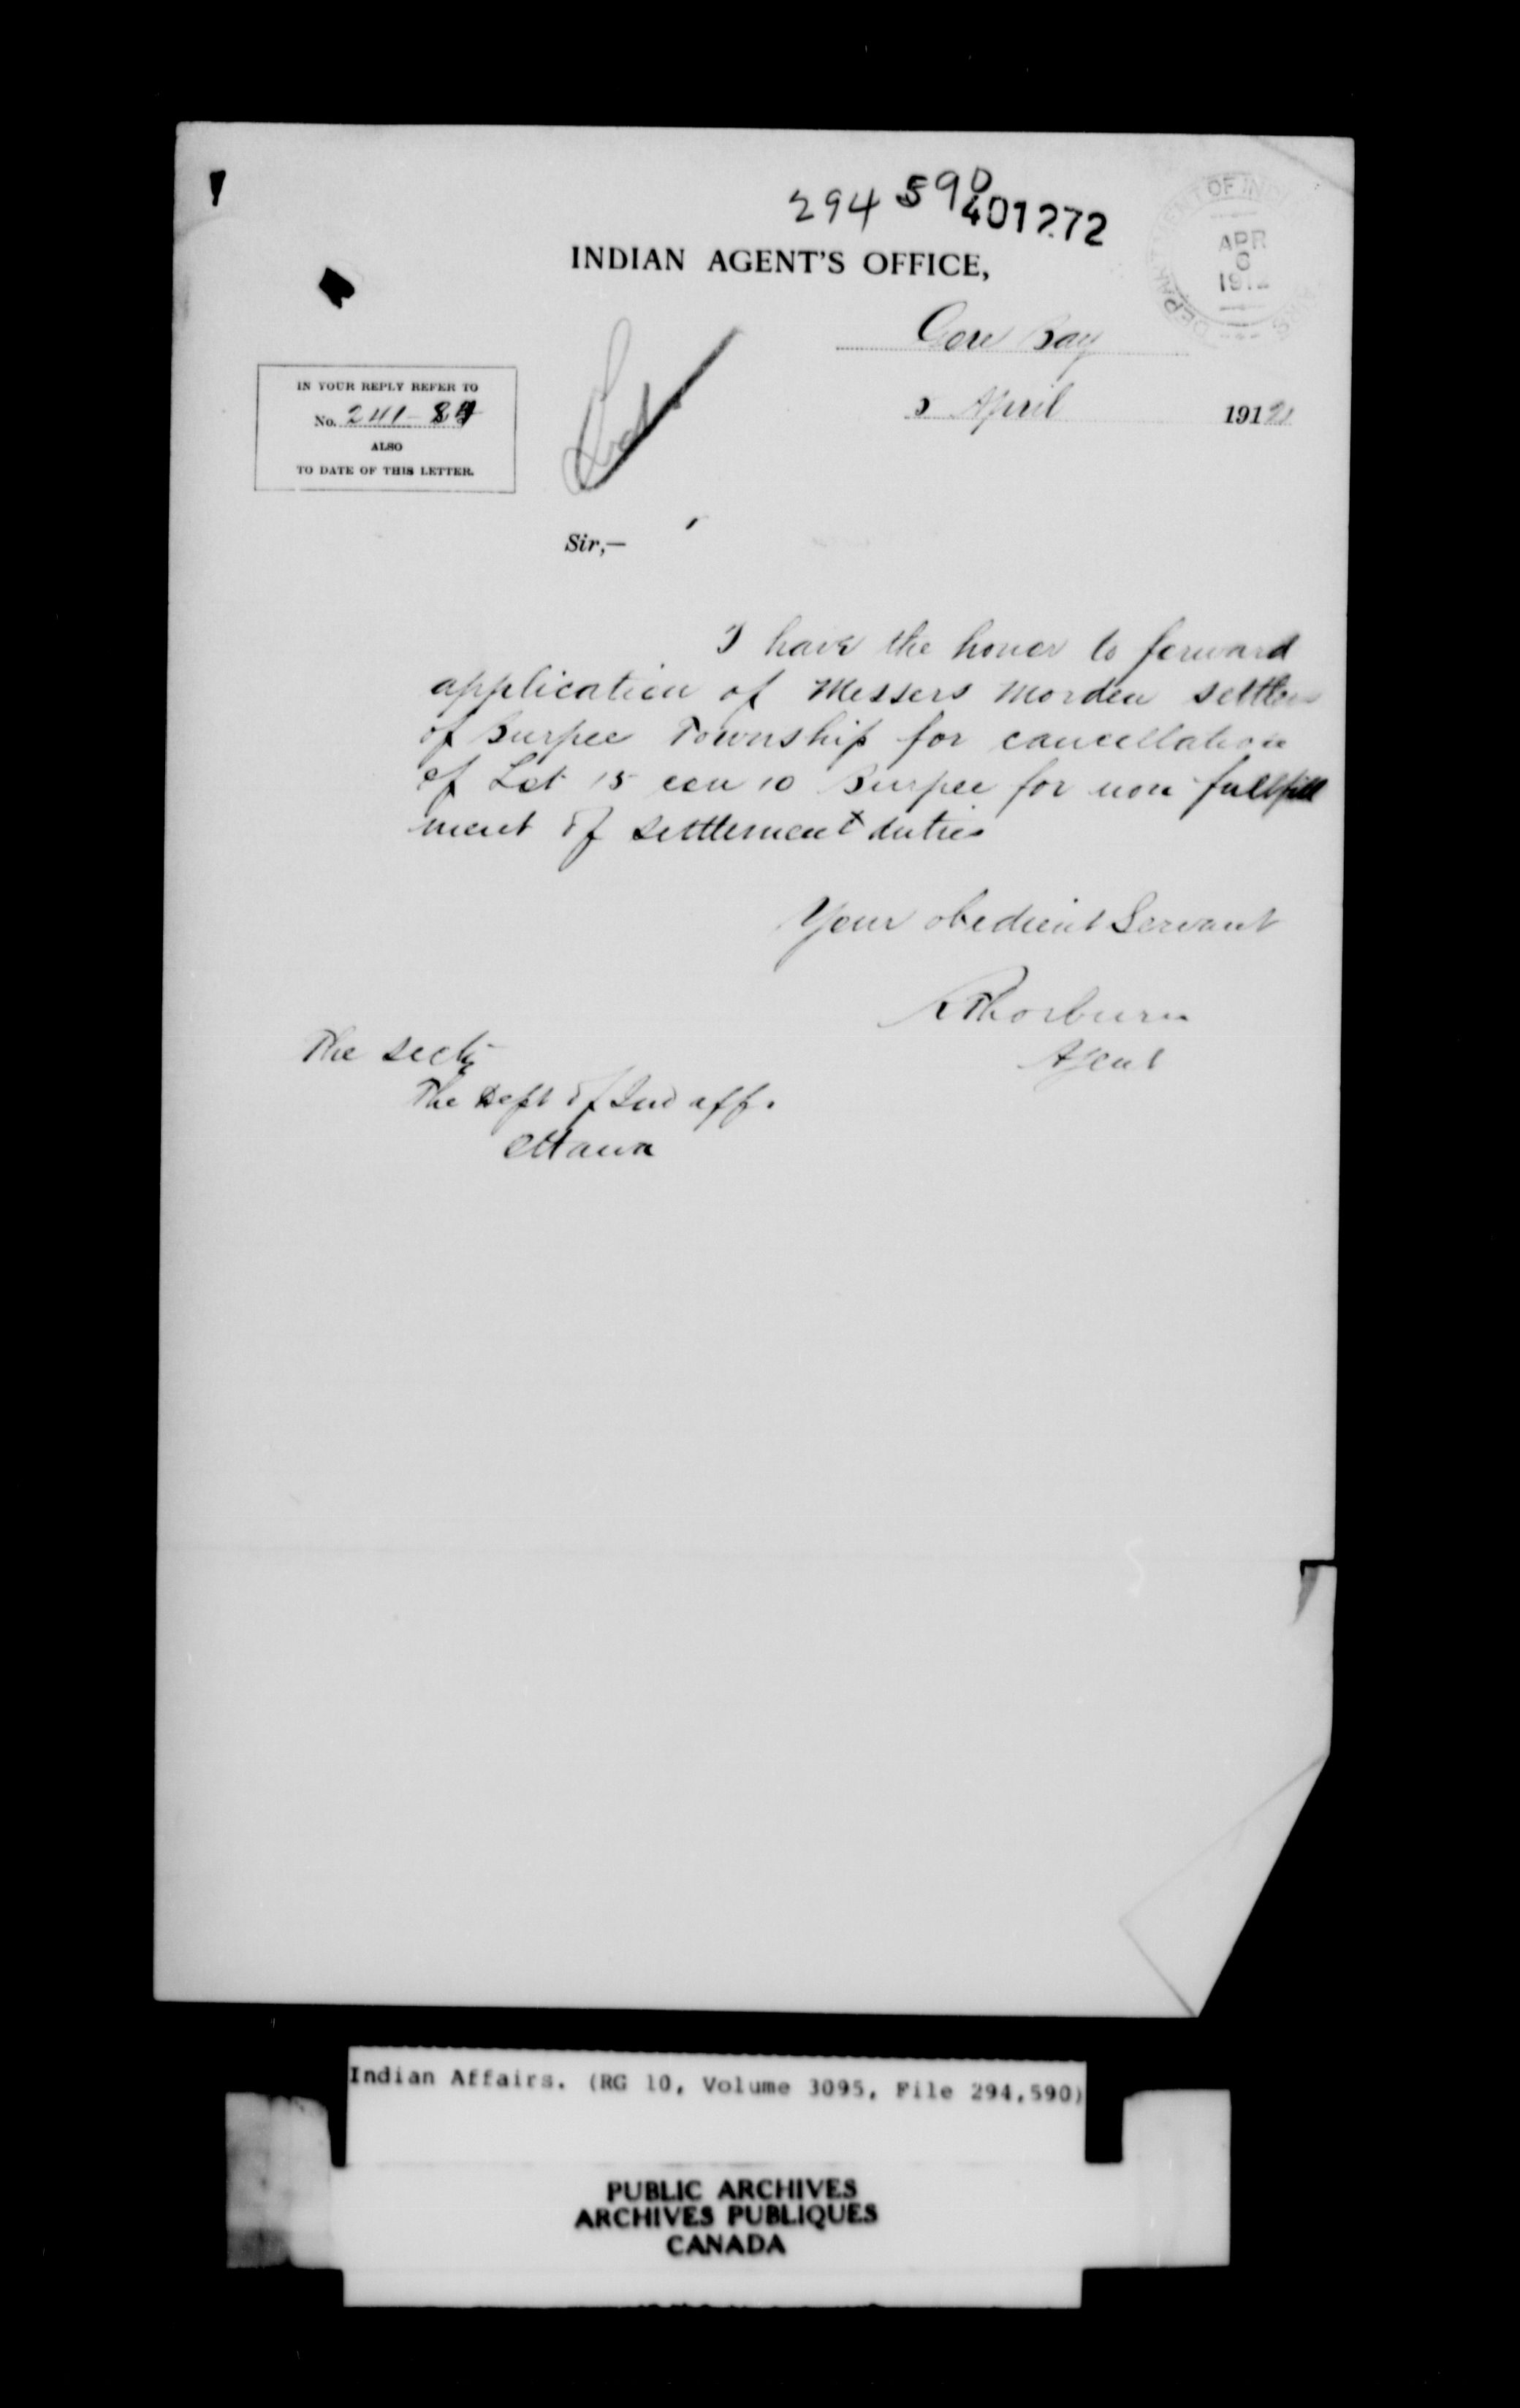 294590
401272
DEPARTMENT OF INDI
APR
6
1912
INDIAN AGENT'S OFFICE,
Gore Bay
5 April 1912
IN YOUR REPLY REFER TO
No. 241-84
ALSO
TO DATE OF THIS LETTER.
Sir,—
I have the honor to forward
application of Messers Morden settlers
of Burpee Township for cancellation
of Lot 15 con 10 Burpee for non fullfill
ment of settlement duties
Your obedient Servant
R Thorburn
Agent
The Secty
The Dept of Ind aff.
Ottawa
Indian Affairs. (RG 10, Volume 3095, File 294,590)
PUBLIC ARCHIVES
ARCHIVES PUBLIQUES
CANADA